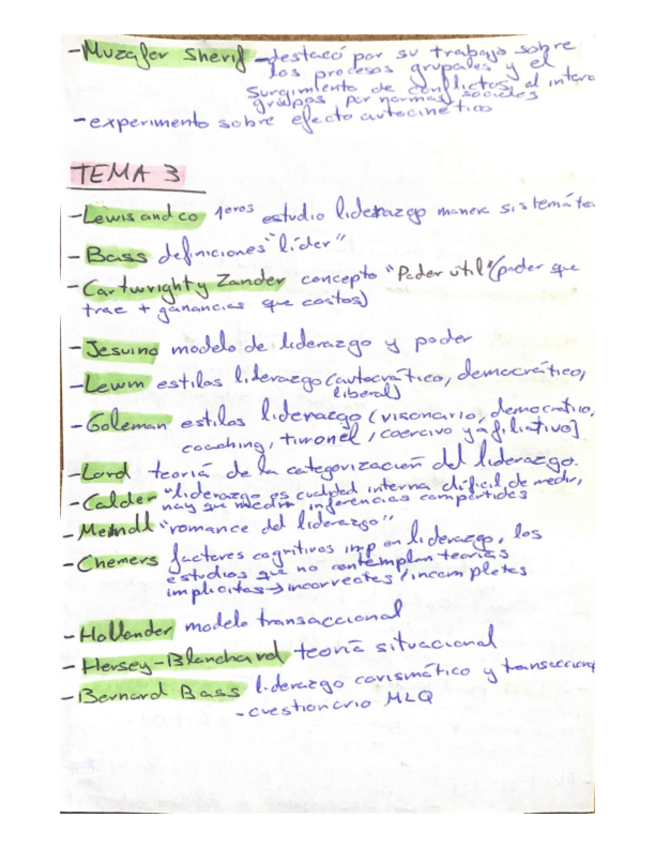 - Muzafer Sherif - destacó por su trabajo sobre
los procesos grupales y el
surgimiento de conflictos al inter
grupos por normas sociales
- experimento sobre efecto autocinético
TEMA 3
- Lewis and co 1eros estudio liderazgo manera sistemáte
- Bass definiciones "líder"
- Cartwright y Zander concepto "Poder util" (poder que
trae + ganancias que costos)
- Jesuino modelo de liderazgo y poder
- Lewin estilos liderazgo (autocrático, democrático,
liberal)
- Goleman estilos liderazgo (visionario, democrático,
coaching, timonel, coercivo y afiliativo)
- Lord teoría de la categorización del liderazgo.
- Calder "liderazgo es cualidad interna difícil de medir,
hay que medir inferencias compartidas
- Meindl "romance del liderazgo"
- Chemers factores cognitivos imp en liderazgo, los
estudios que no contemplan teorías
implicitas → incorrectos / incompletos
- Hollander modelo transaccional
- Hersey-Blanchard teoría situacional
- Bernard Bass liderazgo carismático y transaccion
- cuestionario MLQ